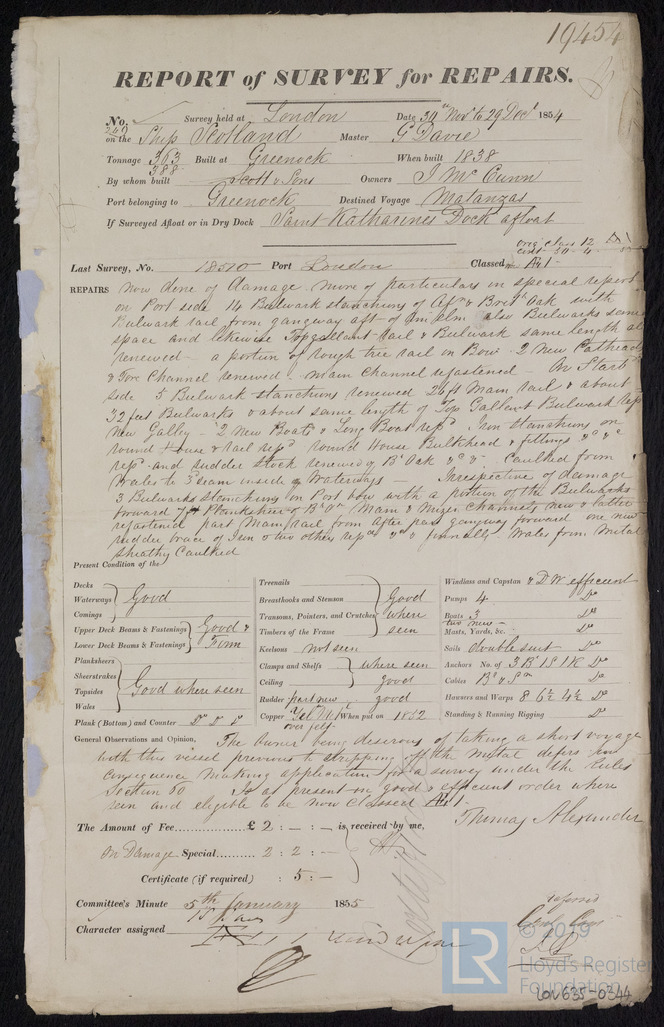 19454
REPORT of SURVEY for REPAIRS.
No. 240 Survey held at London Date 30th Novr to 29 Decr 1854
on the Ship Scotland Master G Davie
Tonnage 363 388 Built at Greenock When built 1838
By whom built Scott & Sons Owners J Mc Cunn
Port belonging to Greenock Destined Voyage Matanzas
If Surveyed Afloat or in Dry Dock Saint Katharines Dock afloat
orig class 12
Last Survey, No. 18510 Port London Classed Æ1
REPAIRS now done of damage more of particulars in special report
on Port side 14 Bulwark stanchions of Afn & Brit Oak with
Bulwark rail from gangway aft of Am elm also Bulwarks same
space and likewise Topgallant rail & Bulwark same length all
renewed - a portion of rough tree rail on Bow - 2 New Catheads
& Fore Channel renewed - main Channel refastened - On Starbd
side 5 Bulwark stanchions renewed 26ft Main rail & about
32 feet Bulwarks & about same length of Top Gallant Bulwark repd
New Galley - 2 New Boats & Long Boat repd - Iron stanchions on
round House & rail repd round House Bulkhead & fittings &c &c
repd and rudder stock renewed of Bt Oak &c &c - Caulked from
Wales to 3 seam inside of Waterways - Irrespective of damage
3 Bulwarks stanchions on Port bow with a portion of the Bulwarks
forward Plankshere of Main & Mizen Channels new & latter
refastened part Main rail from After part gangway forward one new
rudder brace of Iron & two others repd &c & funnells Wales from Metal
sheathg Caulked
Present Condition of the
Decks
Waterways Good
Comings
Upper Deck Beams & Fastenings Good &
Lower Deck Beams & Fastenings Firm
Planksheers
Sheerstrakes
Topsides Good where seen
Wales
Plank (Bottom) and Counter Do Do Do
Treenails
Breasthooks and Stemson Good
Transoms, Pointers, and Crutches where
Timbers of the Frame seen
Keelsons not seen
Clamps and Shelfs where seen
Ceiling good
Rudder part new good
Copper Yel Mt When put on 1852
over felt
Windlass and Capstan & D W efficient
Pumps 4 Do
Boats 3 Do
two new
Masts, Yards, &c. Do
Sails double suit Do
Anchors No. of 3 B 1 S 1 K Do
Cables Do
Hawsers and Warps 8 6½ 4½ Do
Standing & Running Rigging Do
General Observations and Opinion, The owner being desirous of taking a short voyage
with this vessel previous to stripping off the metal defers in
consequence making application for a survey under the Rules
Section 60 Is at present in good & efficient order where
seen and eligible to be now Classed Æ1
Thomas Alexander
The Amount of Fee £ 2 : - : - is received by me,
On Damage Special 2 : 2 : -
Certificate (if required) : 5 : -
Committee's Minute 5th January 1855
Character assigned
© 2019
LR
Lloyd's Register
Foundation
LON635-0344